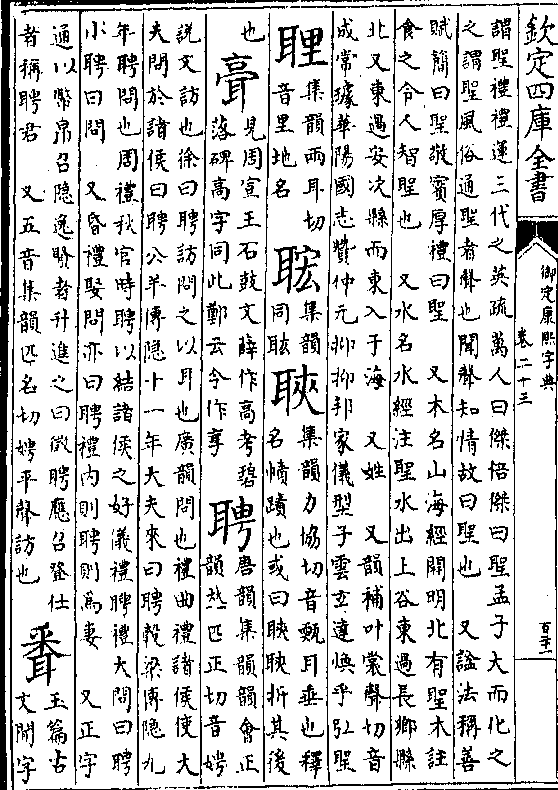 欽定四庫全書
御定康熙字典
卷二十三
謂聖禮禮運三代之英疏萬人曰傑倍傑曰聖孟子大而化之
之謂聖風俗通聖者聲也聞聲知情故曰聖也　又諡法稱善
賦簡曰聖敬賓厚禮曰聖　又木名山海經開明北有聖木註
食之令人智聖也　又水名水經注聖水出上谷東過長鄉縣
北又東過安次縣而東入于海　又姓　又韻補叶裳聲切音
成常璩華陽國志贊仲元抑抑邦家儀型子雲玄達煥乎弘聖
聅集韻兩耳切
音里地名
聎集韻
同聎
聗集韻力協切音甄耳垂也釋
名幘蹟也或曰聗聗折其後
也
𦖞見周宣王石鼓文薛作高考碧
落碑高字同此鄭云今作享
聘唐韻集韻韻會正
韻𠀤匹正切音娉
說文訪也徐曰聘訪問之以耳也廣韻問也禮曲禮諸侯使大
夫問於諸侯曰聘公羊傳隱十一年大夫來曰聘穀梁傳隱九
年聘問也周禮秋官時聘以結諸侯之好儀禮聘禮大問曰聘
小聘曰問　又昏禮娶問亦曰聘禮內則聘則爲妻　又正字
通以幣帛召隱逸賢者升進之曰徵聘應召登仕
者稱聘君　又五音集韻匹名切娉平聲訪也
𦖫玉篇古
文聞字